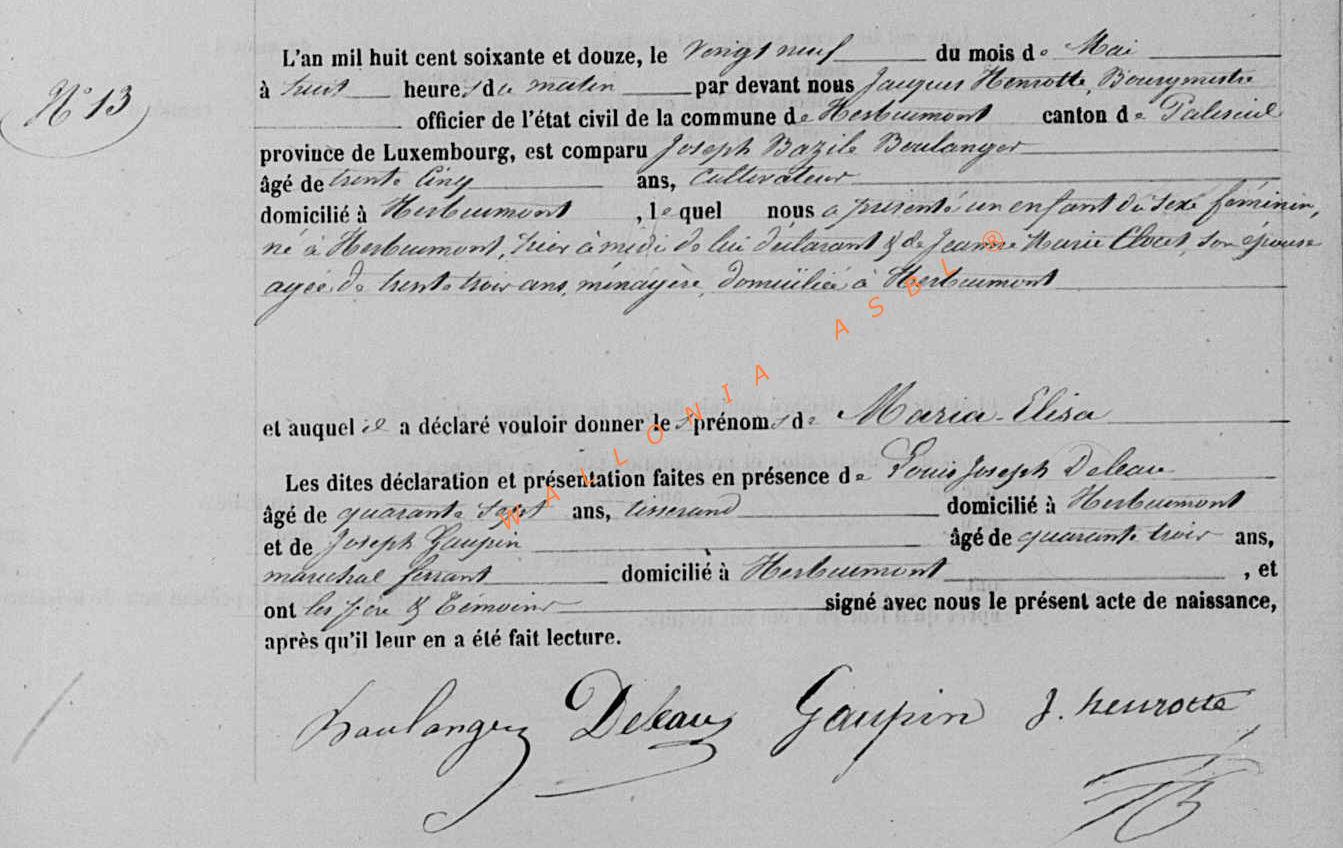 N° 13
L'an mil huit cent soixante et douze, le Vingt neuf du mois de Mai
à huit heures du matin par devant nous Jacques Henrotte, Bourgmestre
officier de l'état civil de la commune de Herbeumont canton de Paliseul
province de Luxembourg, est comparu Joseph Bazile Boulanger
âgé de trente cinq ans, cultivateur
domicilié à Herbeumont, lequel nous a présenté un enfant du sexe féminin,
né à Herbeumont, hier à midi de lui déclarant & de Jeanne Marie, son épouse
agée de trente trois ans, ménagère, domiciliée à Herbeumont
et auquel il a déclaré vouloir donner les prénoms de Maria-Elisa
Les dites déclaration et présentation faites en présence de Louis Joseph Deleau
âgé de quarante sept ans, tisserand domicilié à Herbeumont
et de Joseph Gaupin âgé de quarante trois ans,
maréchal ferrant domicilié à Herbeumont, et
ont les père & témoins signé avec nous le présent acte de naissance,
après qu'il leur en a été fait lecture.
Boulanger Deleau Gaupin J. henrotte
WALLONIA ASBL ®